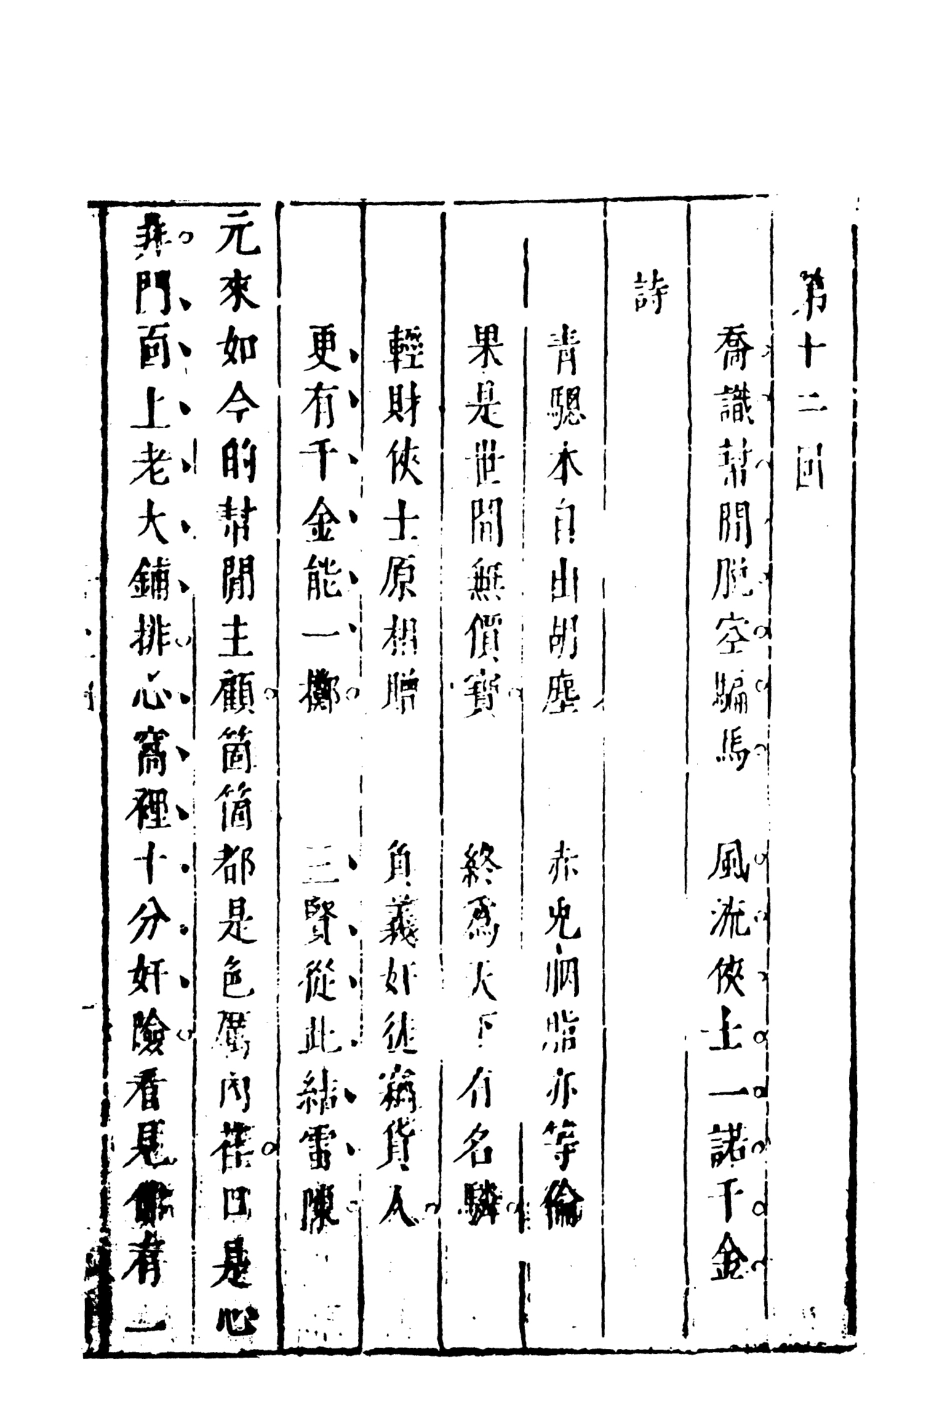 第十二回
喬識幇閒脫空騙馬　風流俠士一諾千金
詩
青驄本自出胡塵　赤兔胭脂亦等倫
果是世間無價寶　終爲天下有名驎
輕財俠士原相贈　負義奸徒竊貨人
更有千金能一擲　三賢從此結雷陳
元來如今的幇閒主顧箇箇都是色厲內荏口是心
非門面上老大鋪排心窩裡十分奸險看見有一